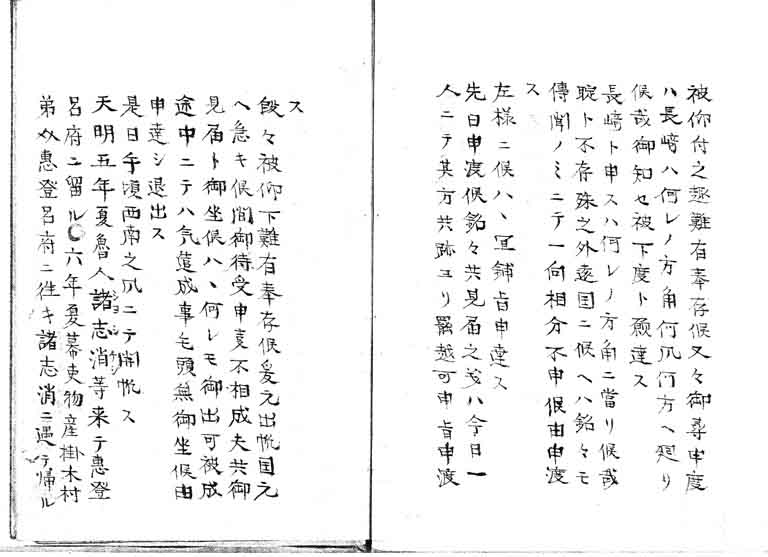 被仰付之趣難有奉存候又々御尋申度
ハ長崎ハ何レノ方角何風何方ヘ廻リ
候哉御知セ被下度ト願達ス
長崎ト申スハ何レノ方角ニ當リ候哉
聢ト不存殊之外遠国ニ候ヘハ銘々モ
傳聞ノミニテ一向相分不申候由申渡
ス
左様ニ候ハヽ宜鋪旨申達ス
先日申渡候銘々共見届之者ハ今日一
人ニテ其方共跡ヨリ罷越可申旨申渡
ス
段々被仰下難有奉存候爰元出帆国元
ヘ急キ候間御待受申事不相成夫共御
見届ト御坐候ハヽ何レモ御出可被成
途中ニテハ気遣成事毛頭無御坐候由
申達シ退出ス
是日午頃西南之風ニテ開帆ス
天明五年夏魯人諸志消等来テ惠登
ショシケシ
呂府ニ留ル〇六年夏幕吏物産掛木村
弟 惠登呂府ニ往キ諸志消ニ遇テ帰ル